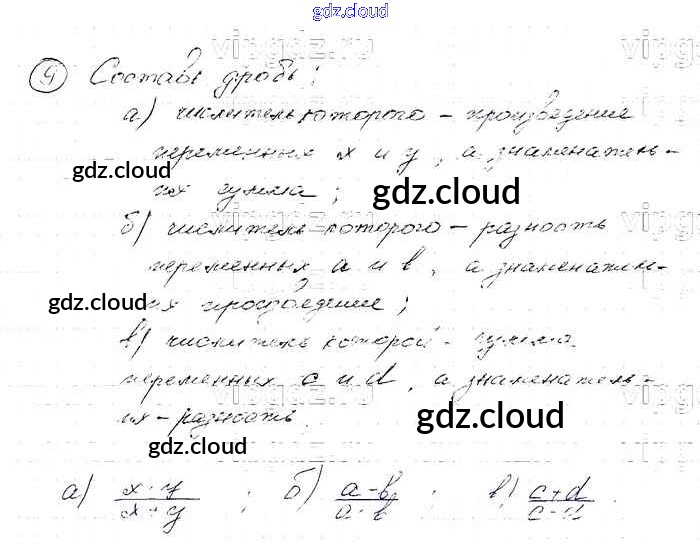 gdz.cloud
vipgdz.ru
⑨ Составь дробь:
а) числитель которого – произведение
переменных x и y, а знаменатель –
gdz.cloud
их сумма;
gdz.cloud
б) числитель которого – разность
переменных a и b, а знаменатель –
gdz.cloud
их произведение;
в) числитель которой – сумма
переменных c и d, а знаменатель –
их – разность.
gdz.cloud
gdz.cloud
а) x·y/x+y ; б) a-b/a·b ; в) c+d/c-d .